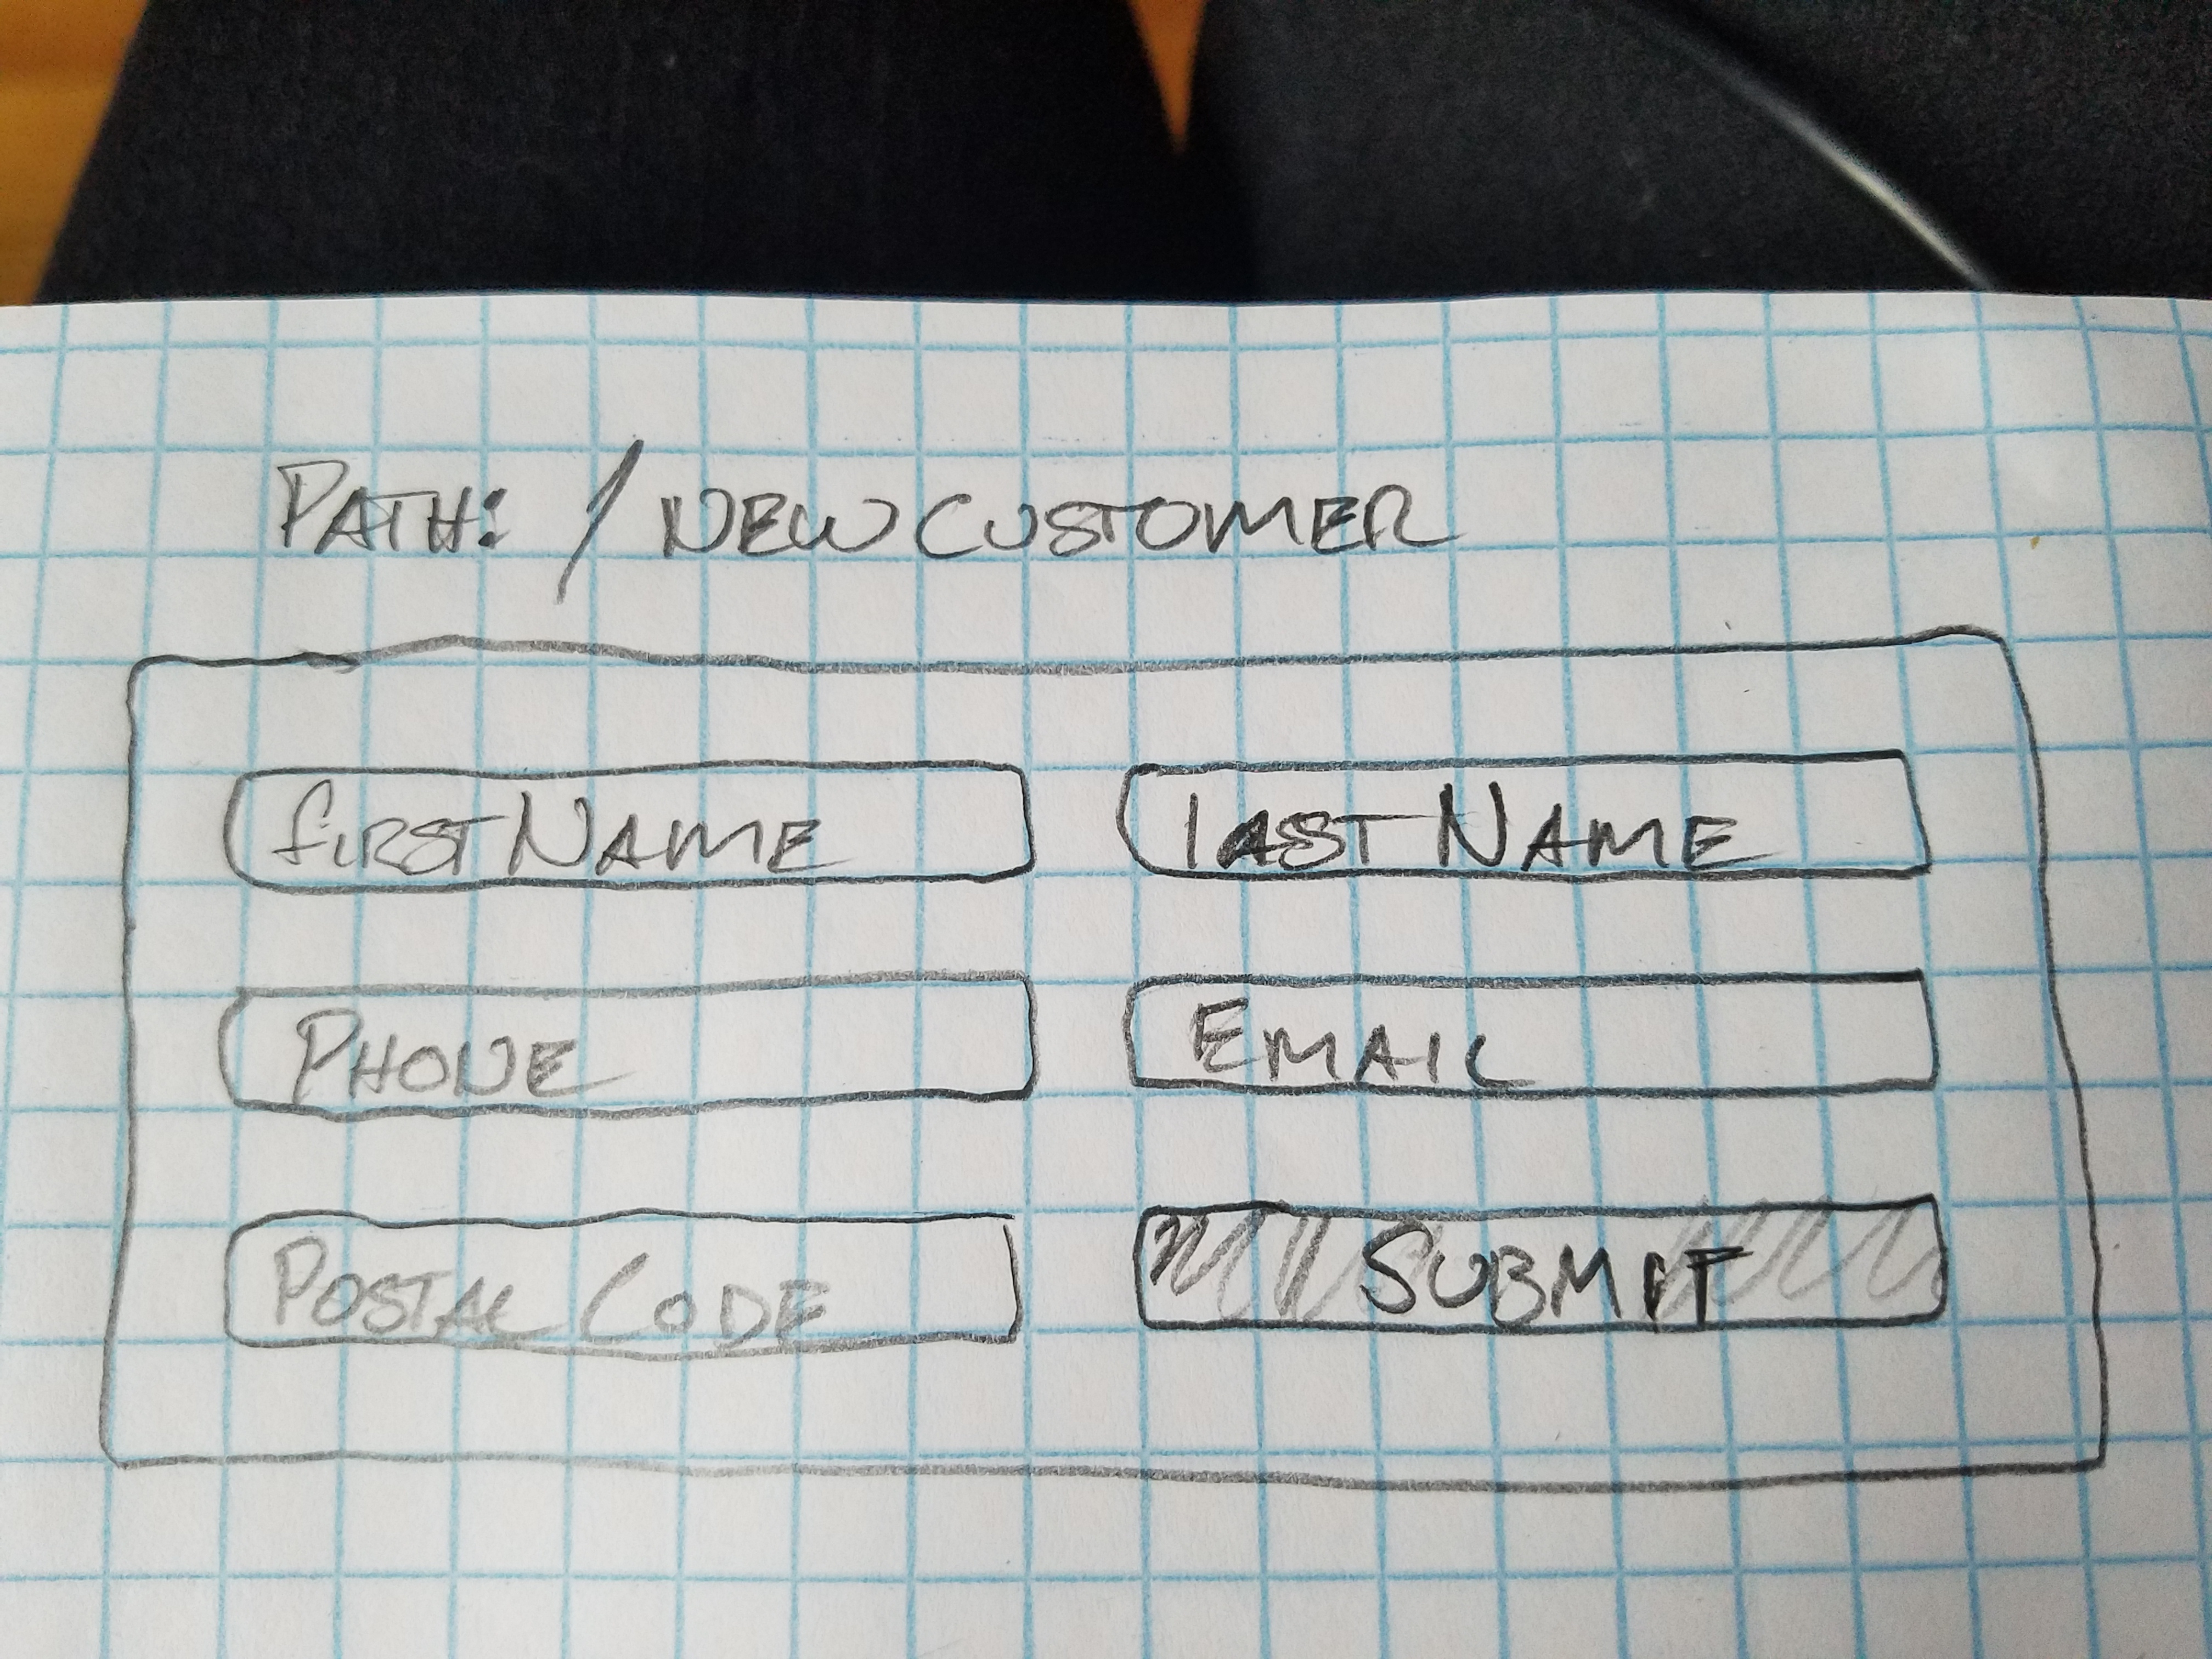 PATH: /NEWCUSTOMER
firstName
lastName
PHONE
EMAIL
POSTAL CODE
SUBMIT